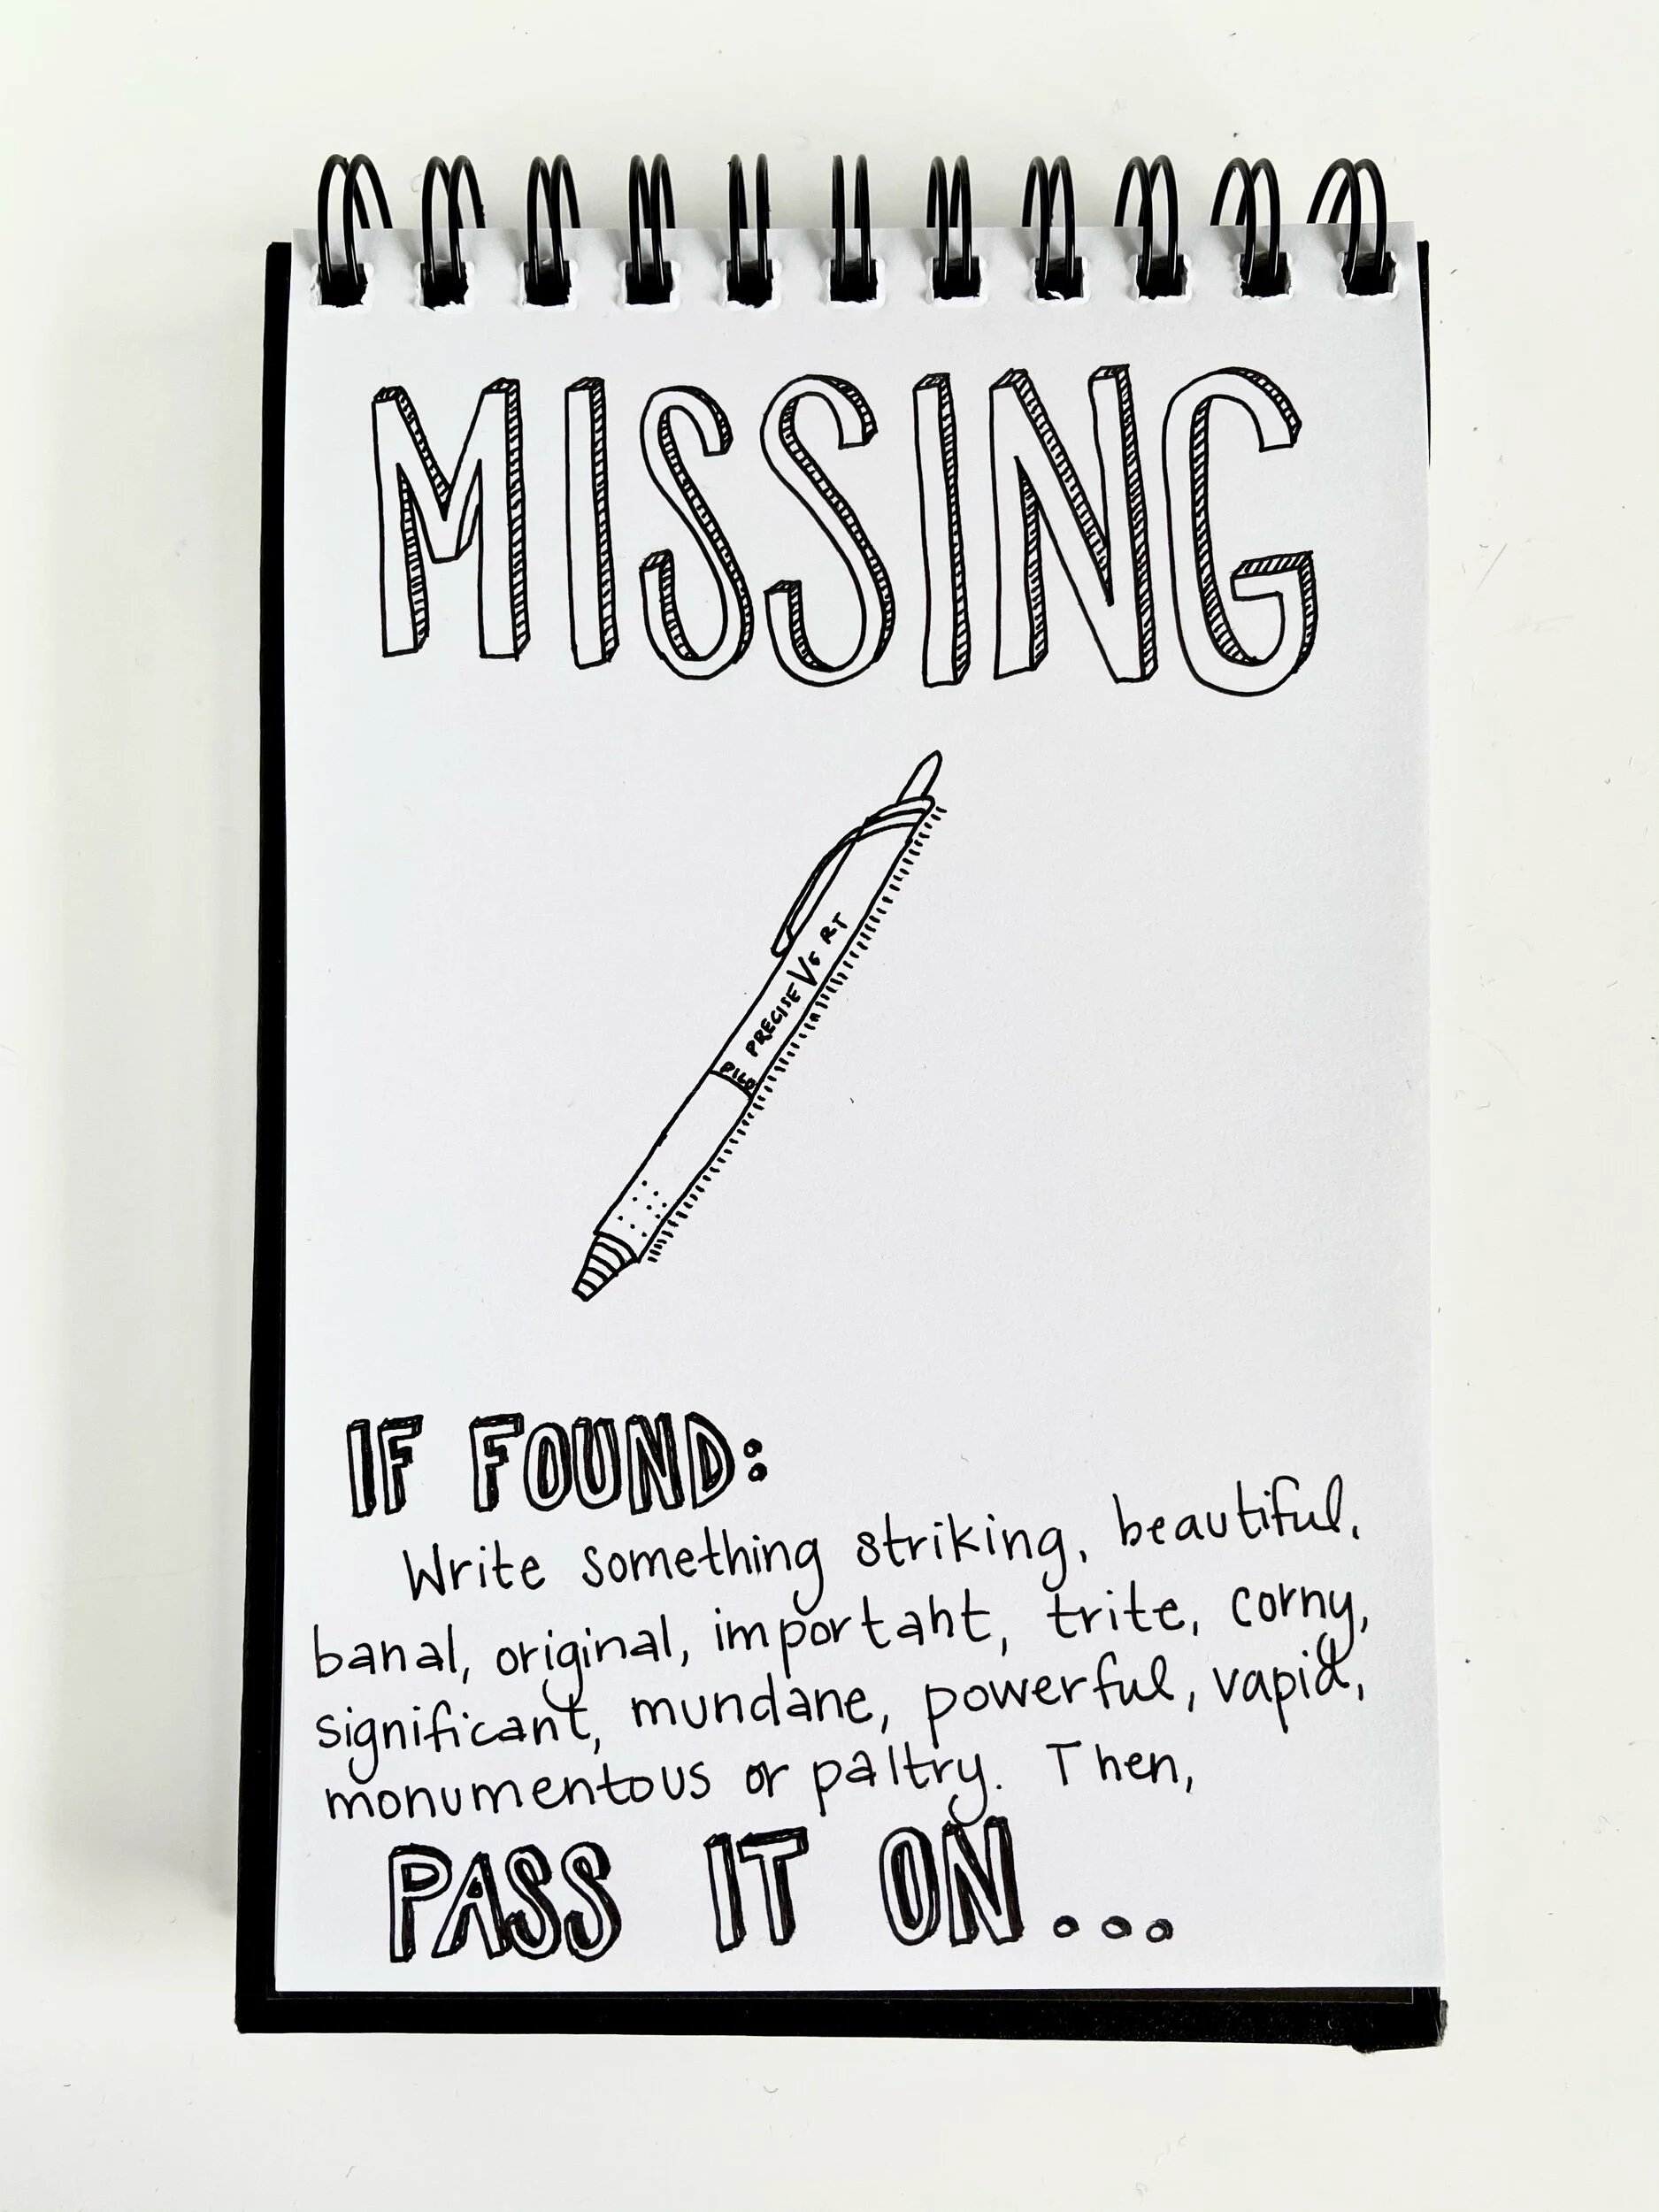 MISSING
PRECISE V5 RT
IF FOUND:
Write something striking, beautiful,
banal, original, important, trite, corny,
significant, mundane, powerful, vapid,
monumentous or paltry. Then,
PASS IT ON...